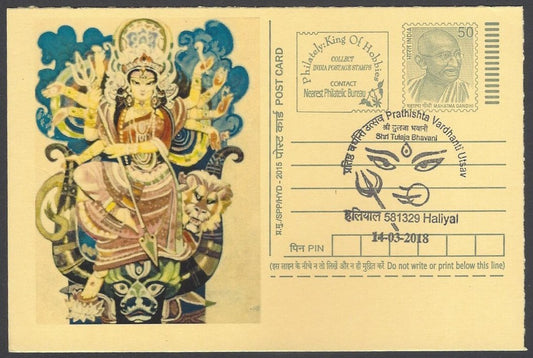 Philately: King Of Hobbies
COLLECT
INDIA POSTAGE STAMPS
CONTACT
Nearest Philatelic Bureau
भारत INDIA
50
महात्मा गाँधी MAHATMA GANDHI
पोस्ट कार्ड POST CARD
प्र.मु./SPP/HYD - 2015
Prathishta Vardhanti Utsav
श्री तुलजा भवानी
Shri Tulaja Bhavani
हलियाल 581329 Haliyal
14-03-2018
पिन PIN
(इस लाइन के नीचे न तो लिखें और न ही मुद्रित करें Do not write or print below this line)